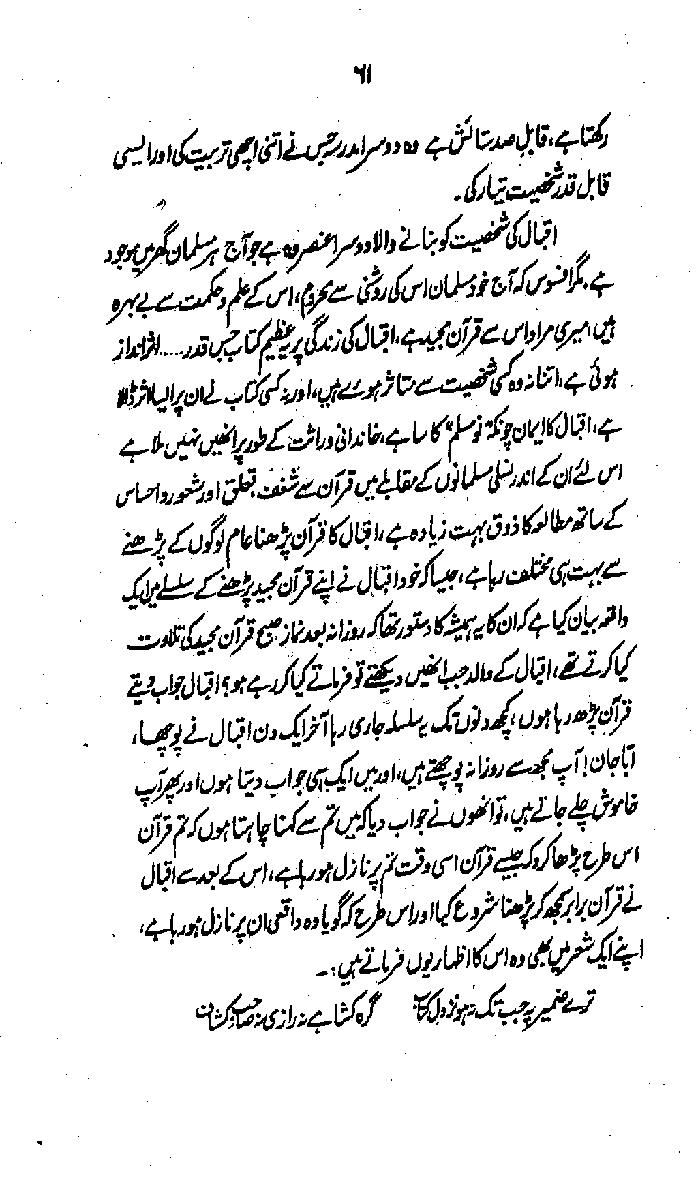 ۶۱
رکھتا ہے، قابلِ صد ستائش ہے وہ دوسرا مدرسہ جس نے اتنی اچھی تربیت کی اور ایسی
قابلِ قدر شخصیت تیار کی۔
اقبال کی شخصیت کو بنانے والا دوسرا عنصر وہ ہے جو آج ہر مسلمان گھر میں موجود
ہے، مگر افسوس کہ آج خود مسلمان اس کی روشنی سے محروم، اس کے علم و حکمت سے بے بہرہ
ہیں، میری مراد اس سے قرآن مجید ہے، اقبال کی زندگی پر یہ عظیم کتاب جس قدر .... اثر انداز
ہوئی ہے، اتنا نہ وہ کسی شخصیت سے متاثر ہوئے ہیں، اور نہ کسی کتاب نے ان پر ایسا اثر ڈالا
ہے، اقبال کا ایمان چونکہ "نو مسلم" کا سا ہے، خاندانی وراثت کے طور پر انھیں نہیں ملا ہے
اس لئے ان کے اندر نسلی مسلمانوں کے مقابلے میں قرآن سے شغف، تعلق اور شعور و احساس
کے ساتھ مطالعہ کا ذوق بہت زیادہ ہے، اقبال کا قرآن پڑھنا عام لوگوں کے پڑھنے
سے بہت ہی مختلف رہا ہے، جیسا کہ خود اقبال نے اپنے قرآن مجید پڑھنے کے سلسلے میں ایک
واقعہ بیان کیا ہے کہ ان کا یہ ہمیشہ کا دستور تھا کہ روزانہ بعد نماز صبح قرآن مجید کی تلاوت
کیا کرتے تھے، اقبال کے والد جب انھیں دیکھتے تو فرماتے کیا کر رہے ہو؟ اقبال جواب دیتے
قرآن پڑھ رہا ہوں، کچھ دنوں تک یہ سلسلہ جاری رہا آخر ایک دن اقبال نے پوچھا،
ابا جان! آپ مجھ سے روزانہ پوچھتے ہیں، اور میں ایک ہی جواب دیتا ہوں اور پھر آپ
خاموش چلے جاتے ہیں، تو انھوں نے جواب دیا کہ میں تم سے کہنا چاہتا ہوں کہ تم قرآن
اس طرح پڑھا کرو کہ جیسے قرآن اسی وقت تم پر نازل ہو رہا ہے، اس کے بعد سے اقبال
نے قرآن برابر سمجھ کر پڑھنا شروع کیا اور اس طرح کہ گویا وہ واقعی ان پر نازل ہو رہا ہے،
اپنے ایک شعر میں بھی وہ اس کا اظہار یوں فرماتے ہیں:۔
ترے ضمیر پہ جب تک نہ ہو نزولِ کتاب گرہ کشا ہے نہ رازی نہ صاحبِ کشاف